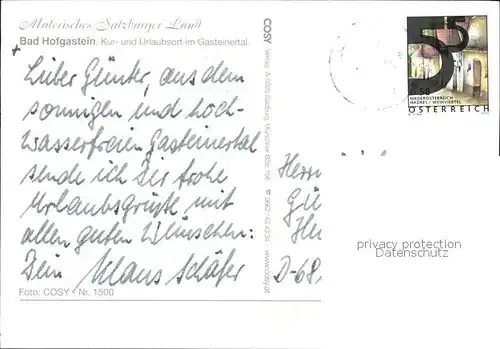 Malerisches Salzburger Land
Bad Hofgastein. Kur- und Urlaubsort im Gasteinertal.
Lieber Günter, aus dem
sonnigen und hoch-
wasserfreien Gasteinertal
sende ich Dir frohe
Urlaubsgrüße mit
allen guten Wünschen:
Dein Klaus Schäfer
Foto: COSY - Nr. 1500
COSY Verlag, Salzburg,
www.cosy.at
55
NIEDERÖSTERREICH
HADRES / WEINVIERTEL
ÖSTERREICH
Herrn
Gü
He
D-68
privacy protection
Datenschutz